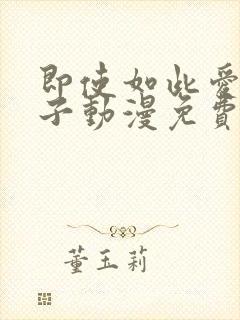 即使如此愛
子動漫免費
董玉莉